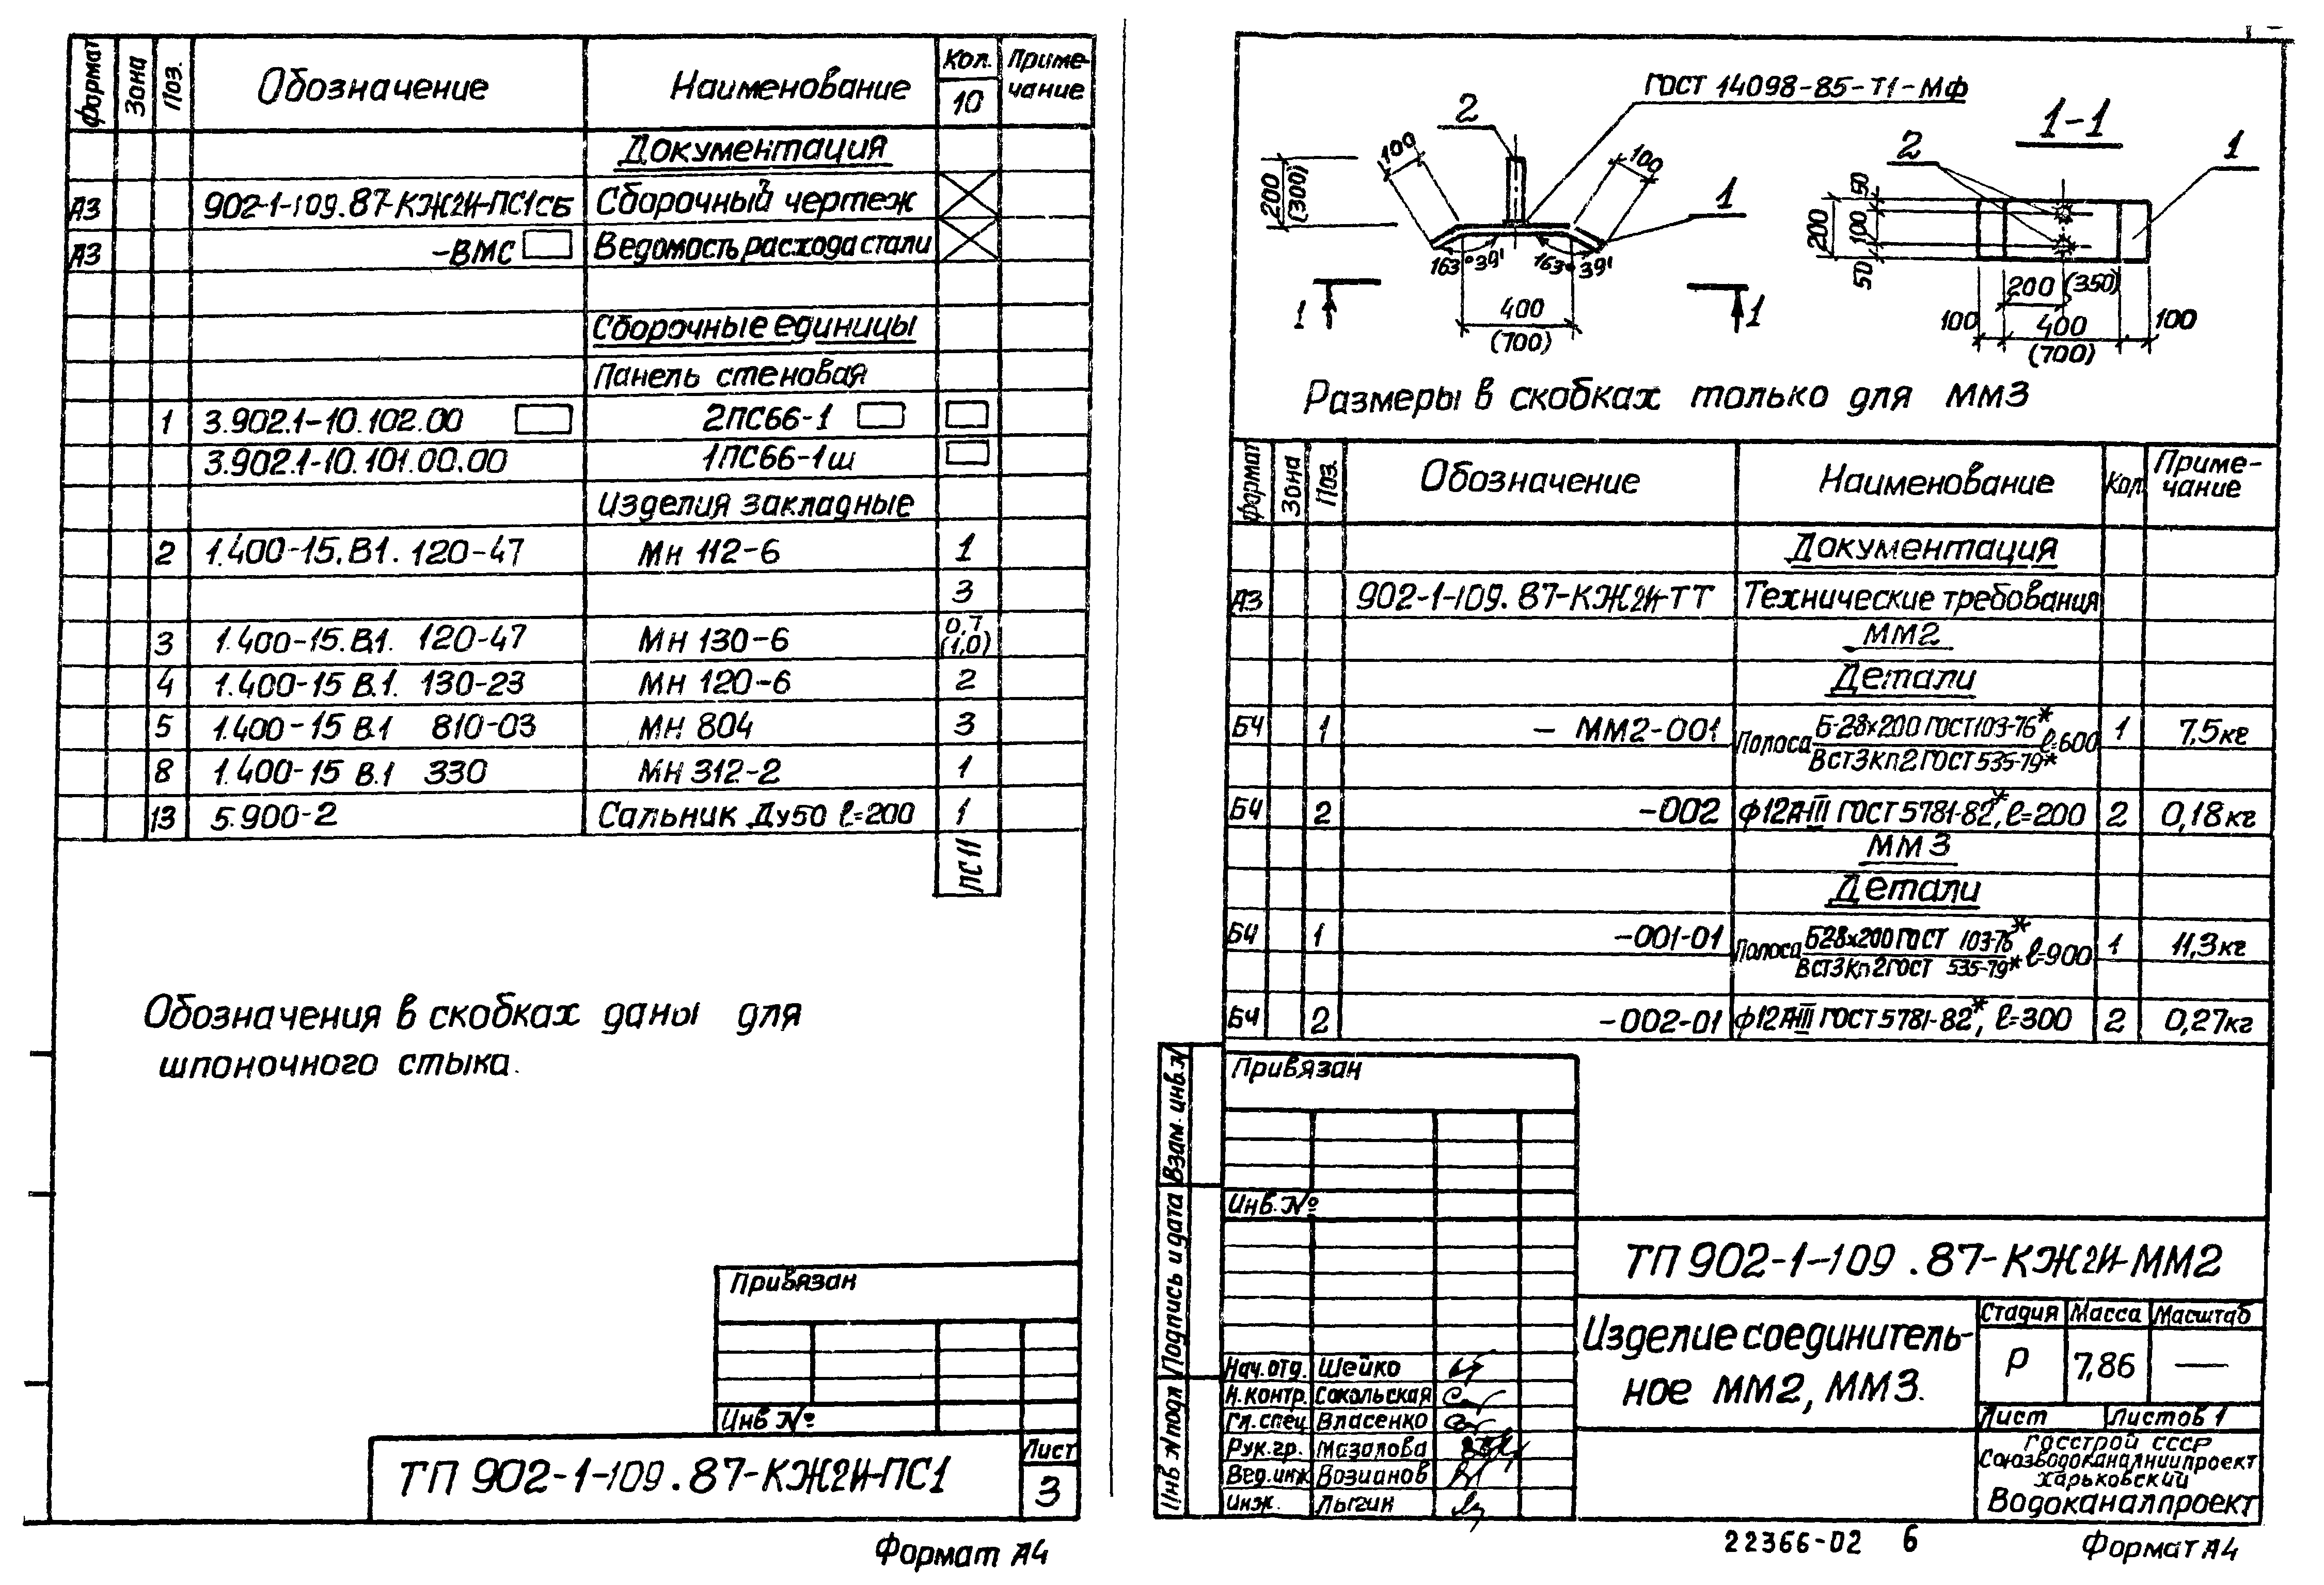 Формат Зона Поз. Обозначение Наименование Кол. 10 Приме-чание
Документация
А3 902-1-109.87-КЖ2И-ПС1СБ Сборочный чертеж
А3 -ВМС Ведомость расхода стали
Сборочные единицы
Панель стеновая
1 3.902.1-10.102.00 2ПС66-1
3.902.1-10.101.00.00 1ПС66-1ш
Изделия закладные
2 1.400-15.В1. 120-47 Мн 112-6 1
3
3 1.400-15.В1. 120-47 Мн 130-6 0,7 (1,0)
4 1.400-15 В.1. 130-23 Мн 120-6 2
5 1.400-15 В.1 810-03 МН 804 3
8 1.400-15 В.1 330 МН 312-2 1
13 5.900-2 Сальник Ду50 ℓ=200 1
ПС11
Обозначения в скобках даны для
шпоночного стыка.
Привязан
Инв №
ТП 902-1-109.87-КЖ2И-ПС1
Лист
3
Формат А4
ГОСТ 14098-85-Т1-Мф
2
100
100
200
(300)
1
163°39'
163°39'
1
1
400
(700)
1-1
2
1
50
200
100
50
200 (350)
100
400
100
(700)
Размеры в скобках только для ММ3
Формат Зона Поз. Обозначение Наименование Кол. Приме-чание
Документация
А3 902-1-109.87-КЖ2И-ТТ Технические требования
ММ2
Детали
БЧ 1 - ММ2-001 Полоса Б-28х200 ГОСТ103-76* ℓ=600 1 7,5кг
ВСт3кп2 ГОСТ 535-79*
БЧ 2 -002 ф12А-III ГОСТ 5781-82*, ℓ=200 2 0,18кг
ММ3
Детали
БЧ 1 -001-01 Полоса Б28х200 ГОСТ 103-76* ℓ=900 1 11,3кг
ВСт3Кп2 ГОСТ 535-79*
БЧ 2 -002-01 ф12А-III ГОСТ 5781-82*, ℓ=300 2 0,27кг
Привязан
Инв. №
Взам. инв. №
Подпись и дата
Инв № подл
ТП 902-1-109.87-КЖ2И-ММ2
Изделие соединитель-
ное ММ2, ММ3.
Стадия Масса Масштаб
Р 7,86 —
Лист Листов 1
Госстрой СССР
Союзводоканалниипроект
Харьковский
Водоканалпроект
Нач.отд. Шейко
Н.контр. Сокольская
Гл.спец Власенко
Рук.гр. Мазалова
Вед.инж Возианов
Инж. Лыгин
22366-02 6
Формат А4